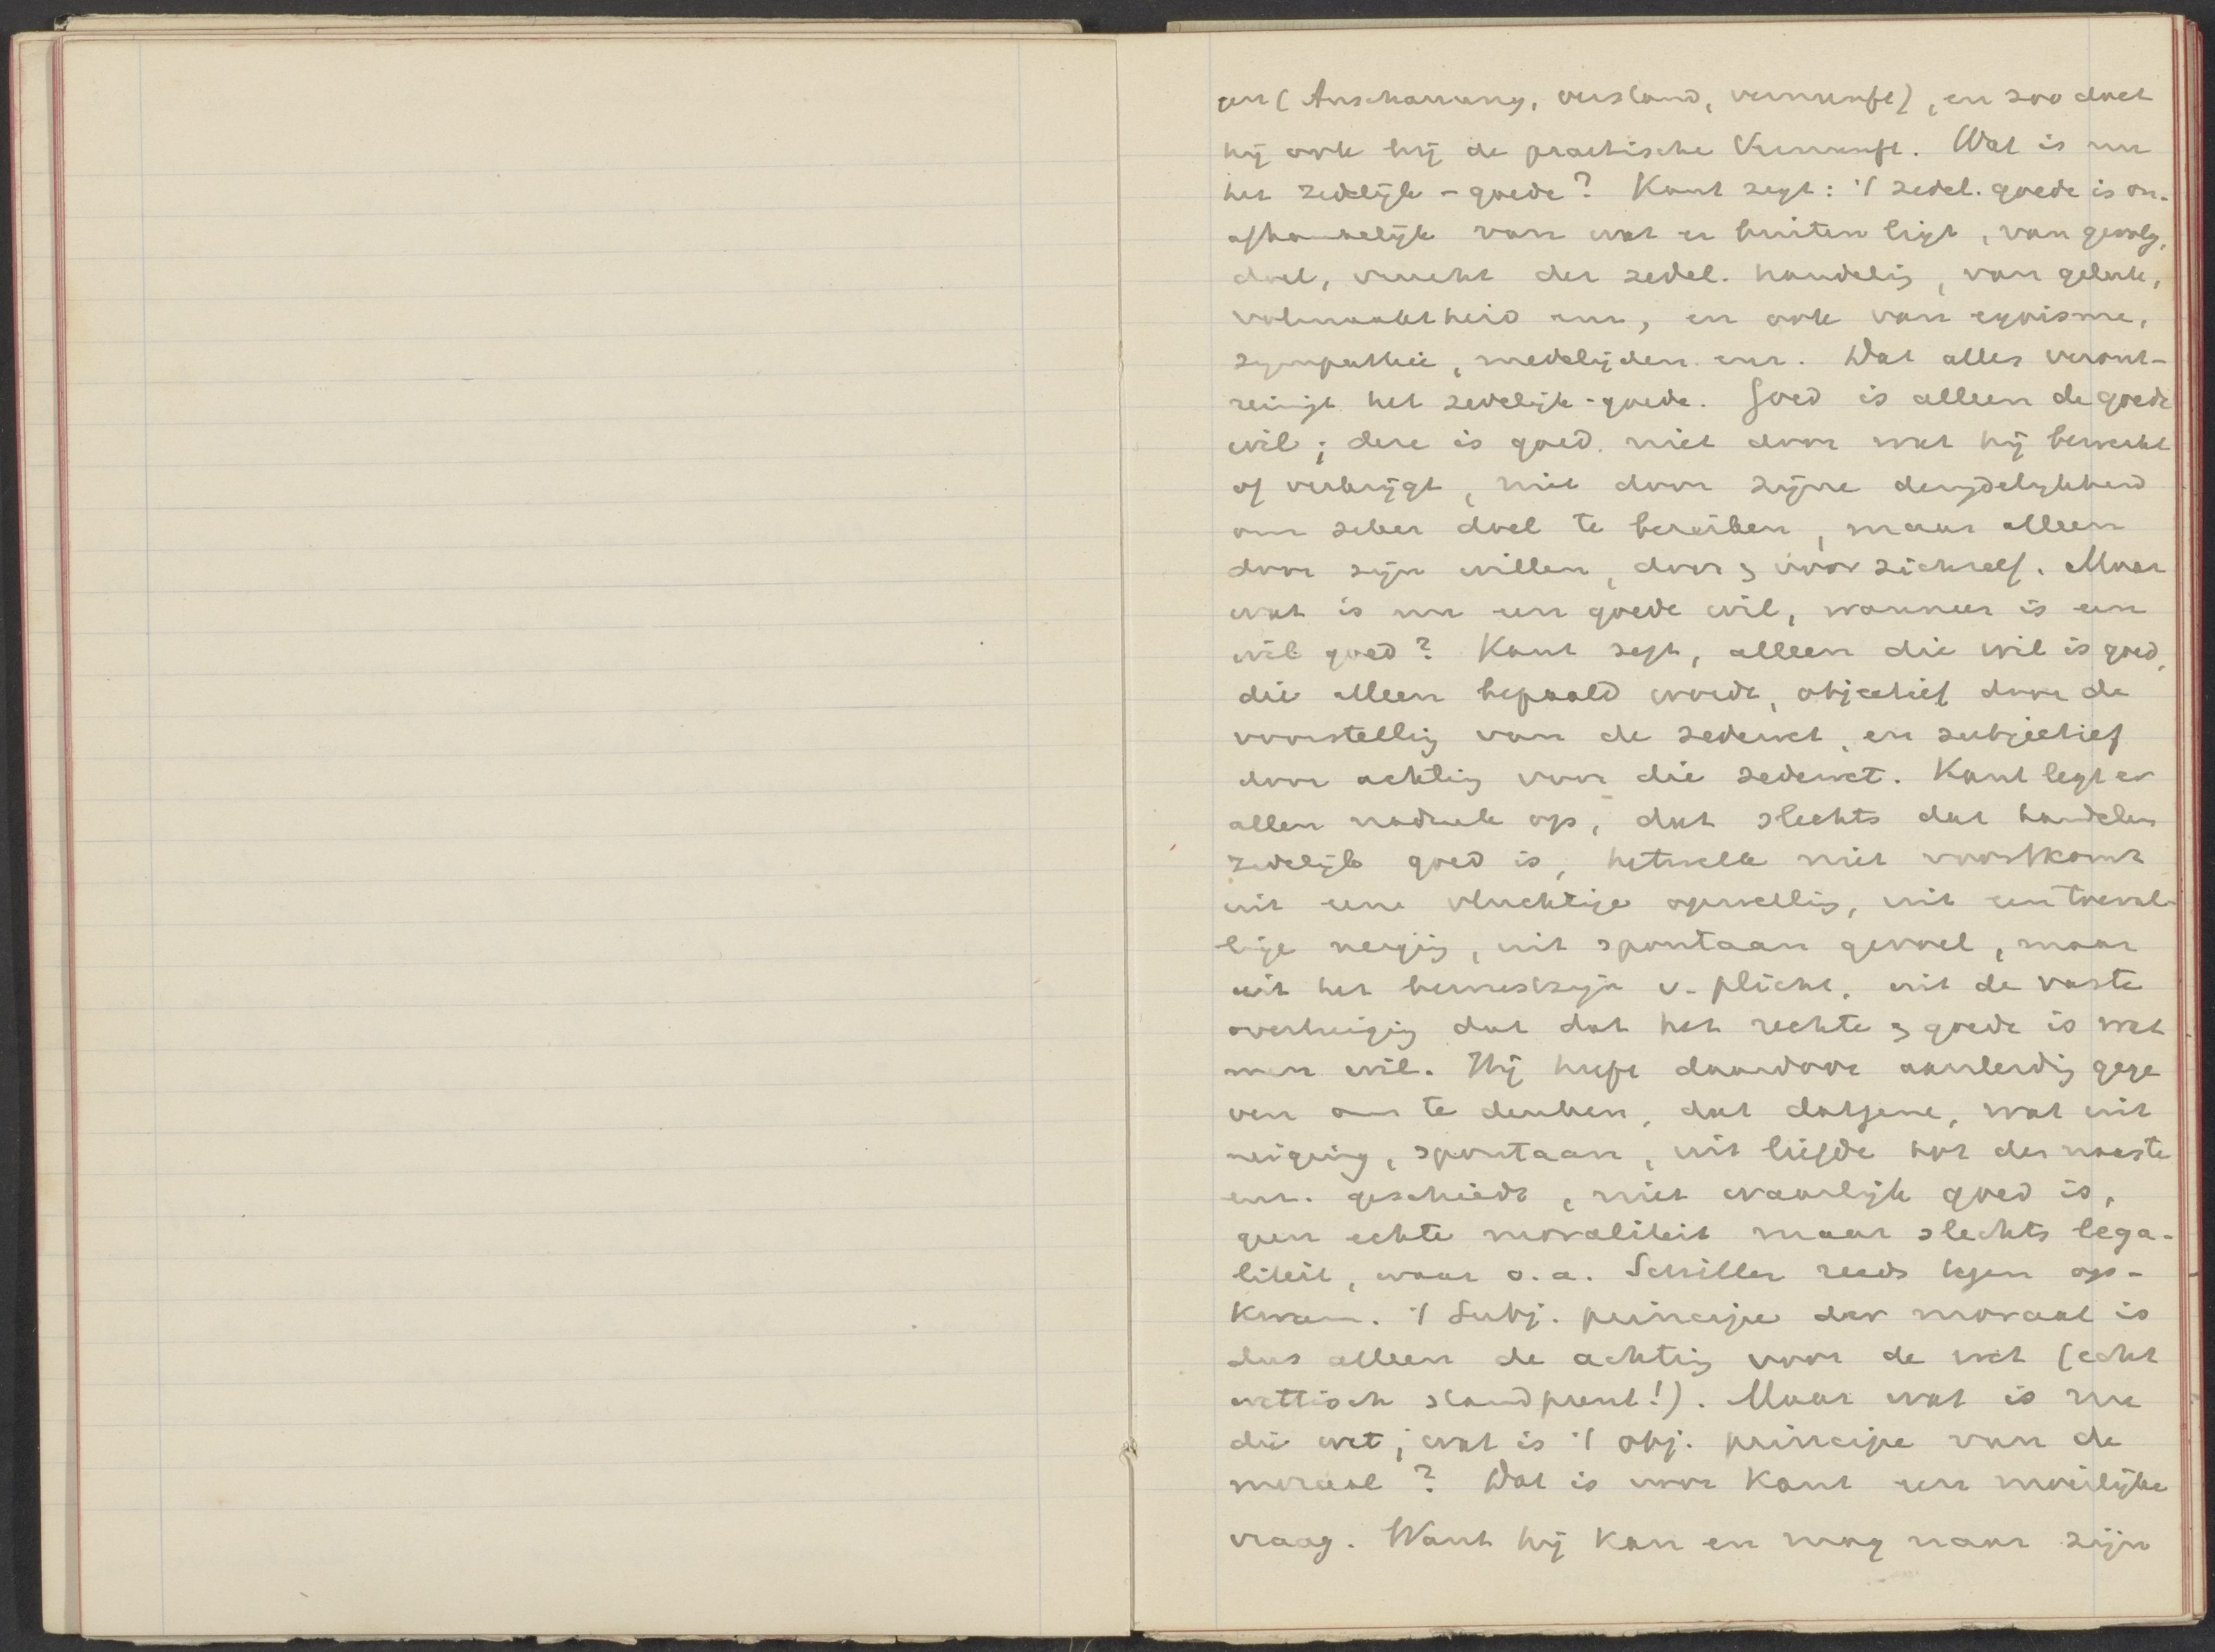 gen (Anschauung, verstand, vernunft), en zoo doet
hij ook bij de practische Vernunft. Wat is nu
het zedelijk-goede? Kant zegt: 't zedel. goede is on-
afhankelijk van wat er buiten ligt, van gevolg,
doel, vrucht der zedel. handelig, van geluk,
volmaaktheid enz, en ook van egoisme,
sympathie, medelijden enz. Dat alles veront-
reinigt het zedelijk-goede. Goed is alleen de goede
wil; deze is goed niet door wat hij bewerkt
of verkrijgt, niet door zijne deugdelijkheid
om zeker doel te bereiken, maar alleen
door zijn willen, door & voor zichzelf. Maar
wat is nu een goede wil, wanneer is een
wil goed? Kant zegt, alleen die wil is goed,
die alleen bepaald wordt, objectief door de
voorstellig van de zedewet, en subjectief
door achtig voor die zedewet. Kant legt er
allen nadruk op, dat slechts dat handelen
zedelijk goed is, hetwelk niet voortkomt
uit eene vluchtige opwellig, uit een toeval-
lige neigig, uit spontaan gevoel, maar
uit het bewustzijn v. plicht, uit de vaste
overtuigig dat dat het rechte & goede is wat
men wil. Hij heeft daardoor aanleidig gege
ven om te denken, dat datgene, wat uit
neiging, spontaan, uit liefde tot den naaste
enz. geschiedt, niet waarlijk goed is,
geen echte moraliteit maar slechts lega-
liteit, waar o.a. Schiller reeds tegen op-
kwam. 't Subj. principe der moraal is
dus alleen de achtig voor de wet (echt
wettisch standpunt!). Maar wat is nu
die wet; wat is 't obj. principe van de
moraal? Dat is voor Kant een moeilijke
vraag. Want hij kan en mag naar zijn